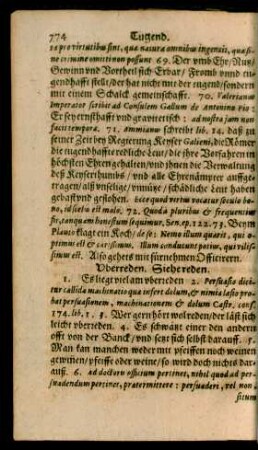 774 Tugend.
is pro virtutibus sint, quæ natura omnibus ingenuit, qua si-
ne crimine omitti non possunt 69. Der vmb Ehr/Nutz/
Gewinn vnd Vortheil sich Erbar/ Fromb vnnd
gendhafft stellt/ der hat nicht mit der tugend/ sondern
mit einem Schalck gemeinschafft. 70. Valerianus
Imperator scribit ad Consulem Gallum de Antonino Pio:
Er sey ernsthafft vnd gravietisch: ad nostra jam non
facit tempora. 71. Ammianus schreibt lib. 14. daß zu
seiner Zeit bey Regierung Keyser Galieni, die Römer
die tugendhaffte redliche leut/ die jhre Vorfahren in
höchsten Ehren gehalten/ vnd jhnen die Verwaltung
deß Keyserthumbs/ vnd alle Ehrenämpter auffge-
tragen/ als vnselige/ vnnütze/ schädliche leut haben
gehasst vnd geflohen. hicce quod verum vocatur seculo bo-
no, id sictu est malo. 72. Quod à pluribus & frequentius
fit, tanquam honestum sequimur, Sen. ep. 122. 73. Beym
Plauto klagt ein Koch/ das es: Nemo illum quærit, qui o-
ptimus est & carissimus. Illum conducunt potius, qui vilis-
simus est. Also gehets mit fürnehmen Officirern.
Vberreden. Siehe reden.
1. Es lieg viel am vberreden 2. Persuasio dici-
tur callida machinatio qua infert dolum, & nimia lasio pro-
bat persuasionem, machinationem & dolum Castr. cons.
174. lib. 1. 3. Wer gern hört wol reden/ der läst sich
leicht vberreden. 4. Es schwätzt einer den andern
offt von der Banck/ vnd setzt sich selbst darauff. 5.
Man kan manchen weder mit pfeiffen noch weinen
gewinen/ pfeiffe oder weine/ so wird doch nichts dar-
auß. 6. ad doctoris officium pertinet, nihil quod ad per-
suadendum pertinet, prætermittere: persuaderi, vel non,
situm